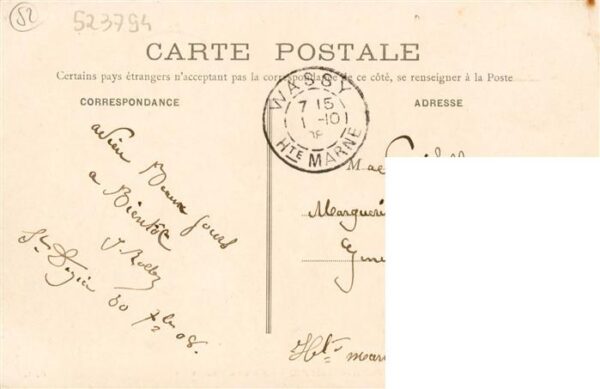 52
523794
CARTE POSTALE
Certains pays étrangers n'acceptant pas la correspondance de ce côté, se renseigner à la Poste
CORRESPONDANCE
ADRESSE
WASSY
7 15
1 -10
08
Hte MARNE
adieu Beaux jours
a Bientôt
St Dizier 30 7bre 08.
M
Margueri
Hte mar